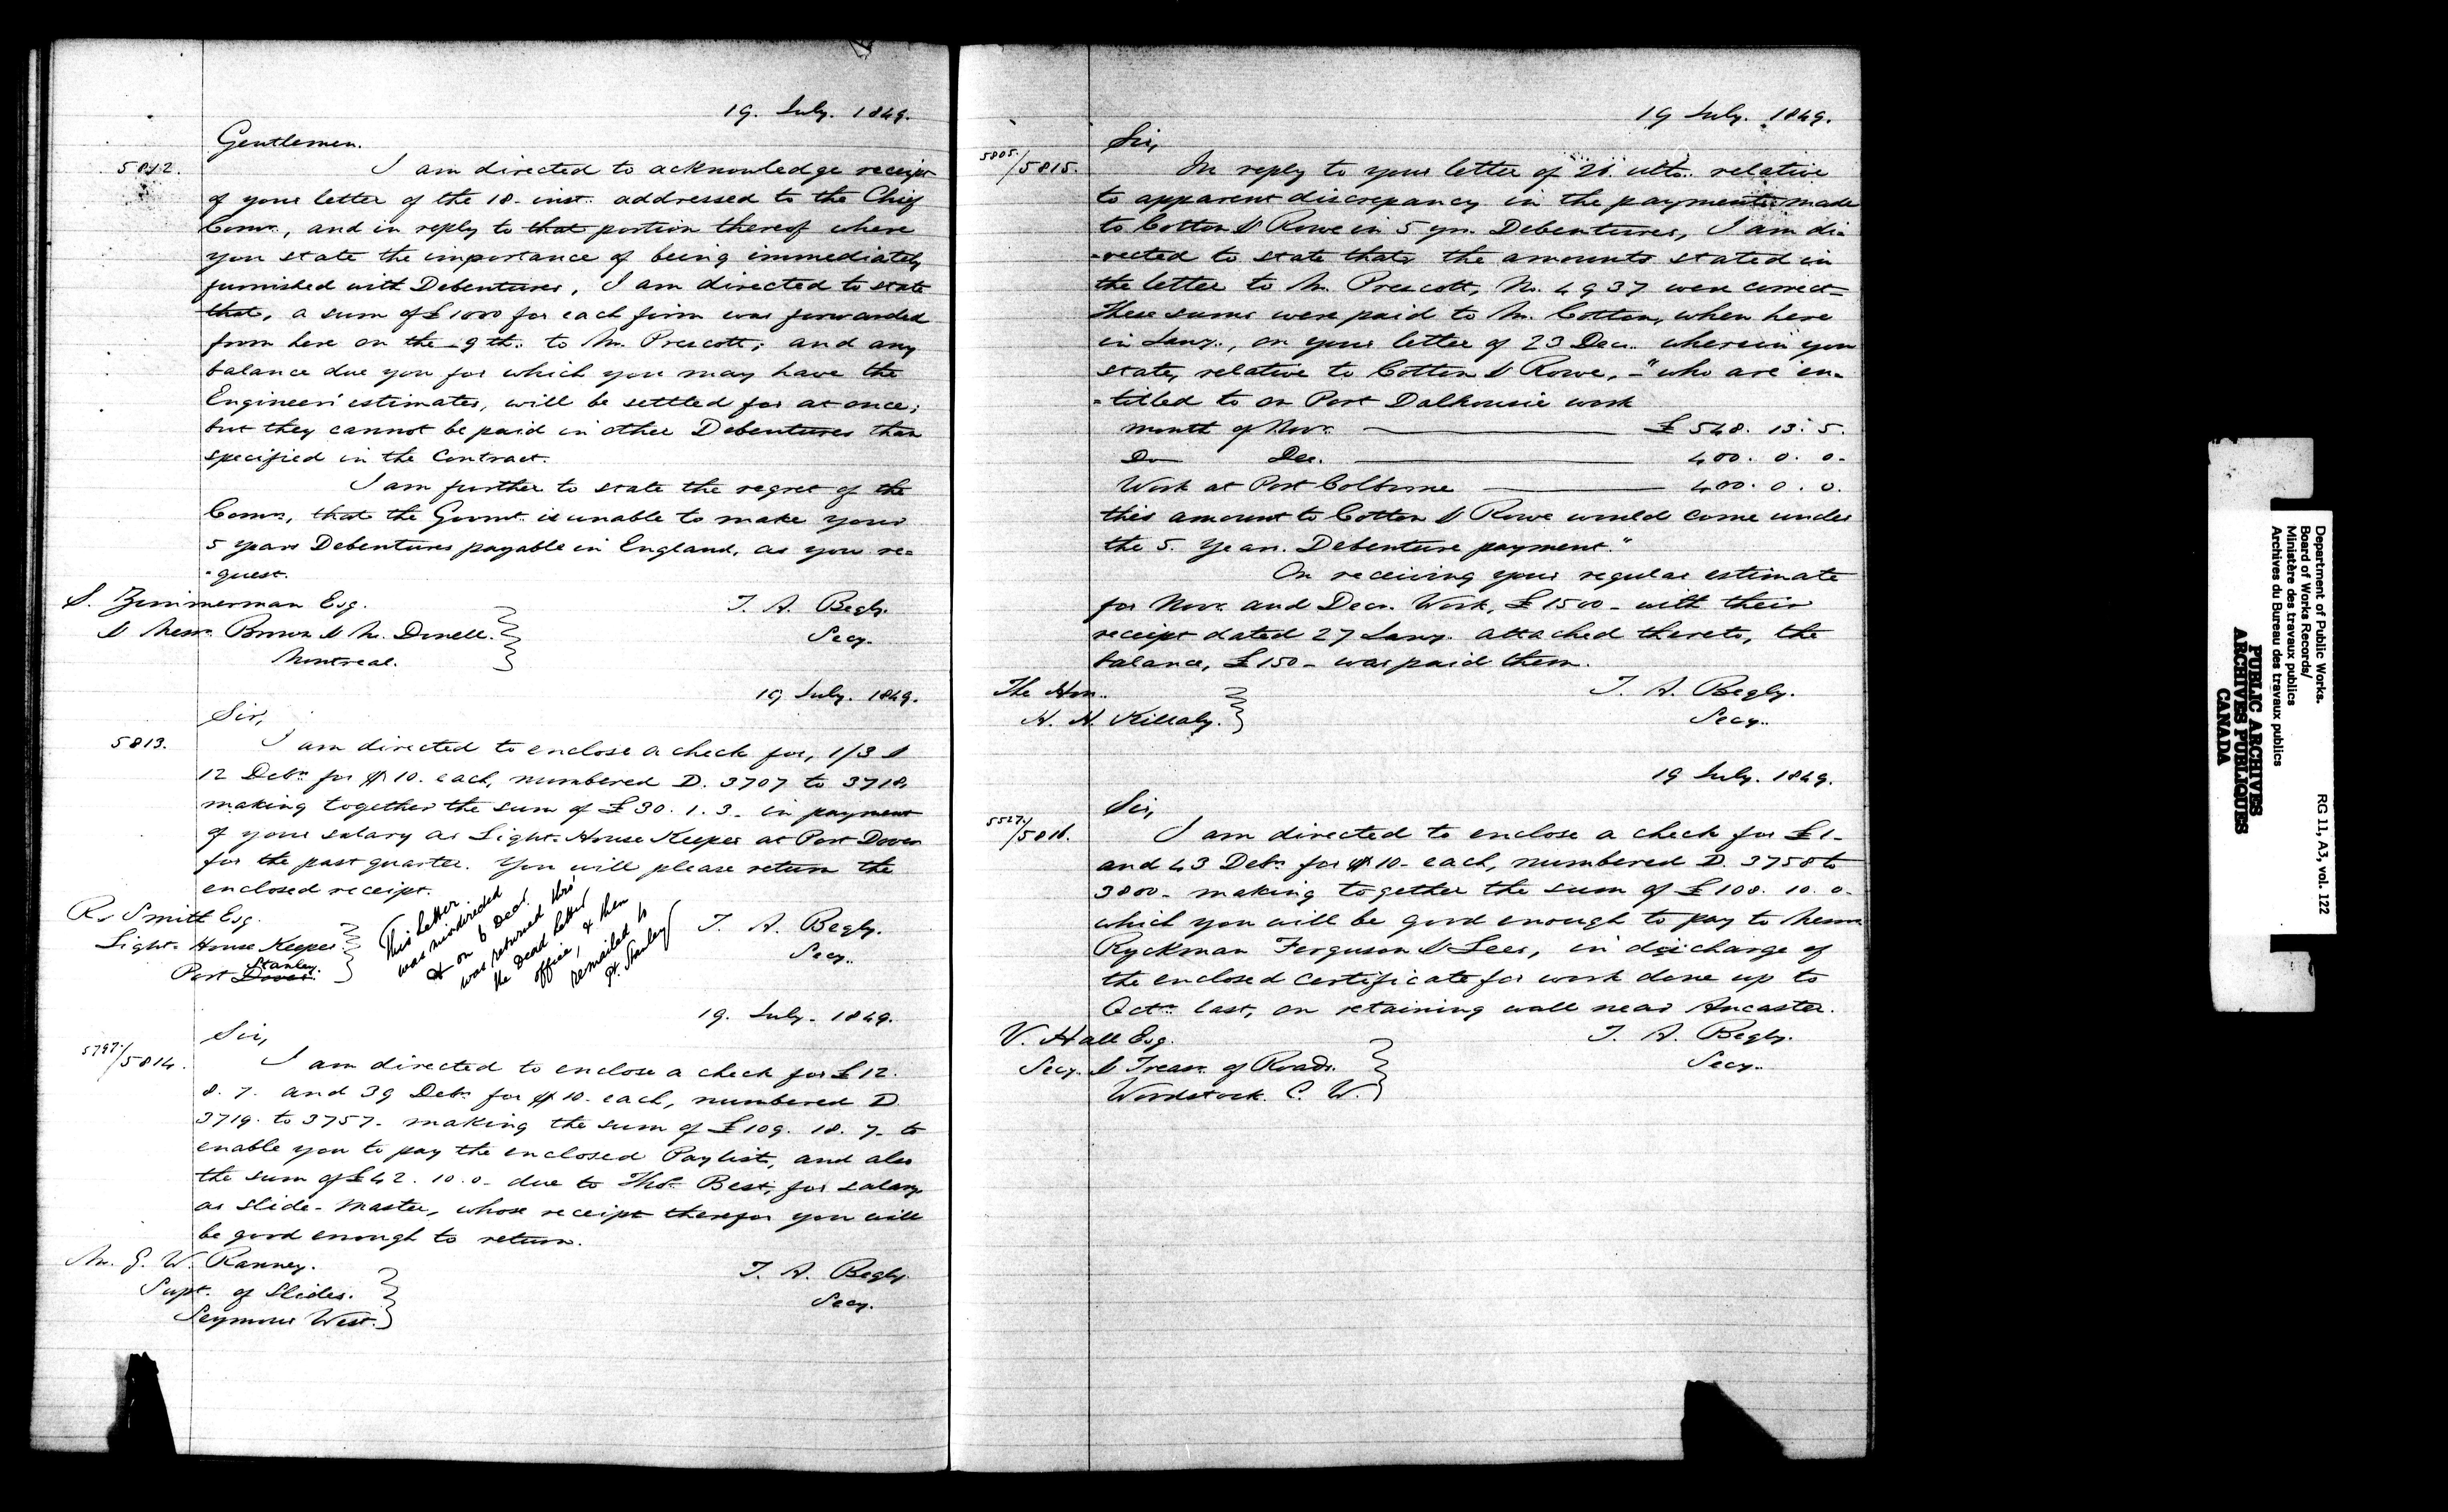 19. July. 1849.
Gentlemen.
5812.
I am directed to acknowledge receipt
of your letter of the 18. inst. addressed to the Chief
Comr., and in reply to that portion thereof where
you state the importance of being immediately
furnished with Debentures, I am directed to state
that, a sum of £1000 for each firm was forwarded
from here on the 9th. to Mr. Prescott; and any
balance due you for which you may have the
Engineers' estimates, will be settled for at once;
but they cannot be paid in other Debentures than
specified in the Contract.
I am further to state the regret of the
Comrs, that the Govmt. is unable to make your
5 years Debentures payable in England, as you re-
-quest.
S. Zimmerman Esq.
& Messrs. Brown &
Montreal.
T. A. Begly.
Secy.
19 July. 1849.
Sir,
5813.
I am directed to enclose a check for, 1/3 &
12 Debs. for $10. each, numbered D. 3707 to 3718,
making together the sum of £30. 1. 3. in payment
of your salary as Light-House Keeper at Port Dover
for the past quarter. You will please return the
enclosed receipt.
R. Smith Esq.
Light-House Keeper.
Stanley.
Port Dover.
This letter.
was misdirected
& on 6 Decr.
was returned thro'
the Dead letter
office, & then
remailed to
Pt. Stanley
T. A. Begly.
Secy..
19. July. 1849.
Sir,
5797./5814.
I am directed to enclose a check for £12.
8. 7. and 39 Debs. for $10. each, numbered D.
3719. to 3757. making the sum of £109. 18. 7. to
enable you to pay the enclosed Paylist, and also
the sum of £42. 10. 0. due to Thos. Best, for salary
as Slide-Master, whose receipt therefor you will
be good enough to return.
Mr. G. W. Ranney.
Supt. of Slides.
Seymour West.
T. A. Begly.
Secy.
19 July. 1849.
Sir,
5805./5815.
In reply to your letter of 21. ulto. relative
to apparent discrepancy in the payments made
to Cotton & Rowe in 5 yrs. Debentures, I am di-
-rected to state that the amounts stated in
the letter to Mr. Prescott, No. 4937 were correct-
These sums were paid to Mr. Cotton, when here
in Jany., on your letter of 23 Decr. wherein you
state, relative to Cotton & Rowe, - "who are en-
-titled to on Port Dalhousie work
month of Novr. £548. 13. 5.
Do Dec. 400. 0. 0.
Work at Port Colborne 400. 0. 0.
this amount to Cotton & Rowe would come under
the 5. Years. Debenture payment."
On receiving your regular estimate
for Novr. and Decr. Work, £1500 - with their
receipt dated 27 Jany. attached thereto, the
balance, £150 - was paid them.
The Hon.
H. H. Killaly.
T. A. Begly.
Secy..
19 July. 1849.
Sir,
5527./5816.
I am directed to enclose a check for £1-
and 43 Debs. for $10. each, numbered D. 3758 to
3800. making together the sum of £108. 10. 0.
which you will be good enough to pay to Messrs
Ryckman Ferguson & Lees, in discharge of
the enclosed certificate for work done up to
Octr. last, on retaining wall near Ancaster.
V. Hall Esq.
Secy. & Treasr. of Roads.
Woodstock. C. W.
T. A. Begly.
Secy..
Department of Public Works.
Board of Works Records/
Ministère des travaux publics
Archives du Bureau des travaux publics
RG 11, A3, vol. 122
PUBLIC ARCHIVES
ARCHIVES PUBLIQUES
CANADA